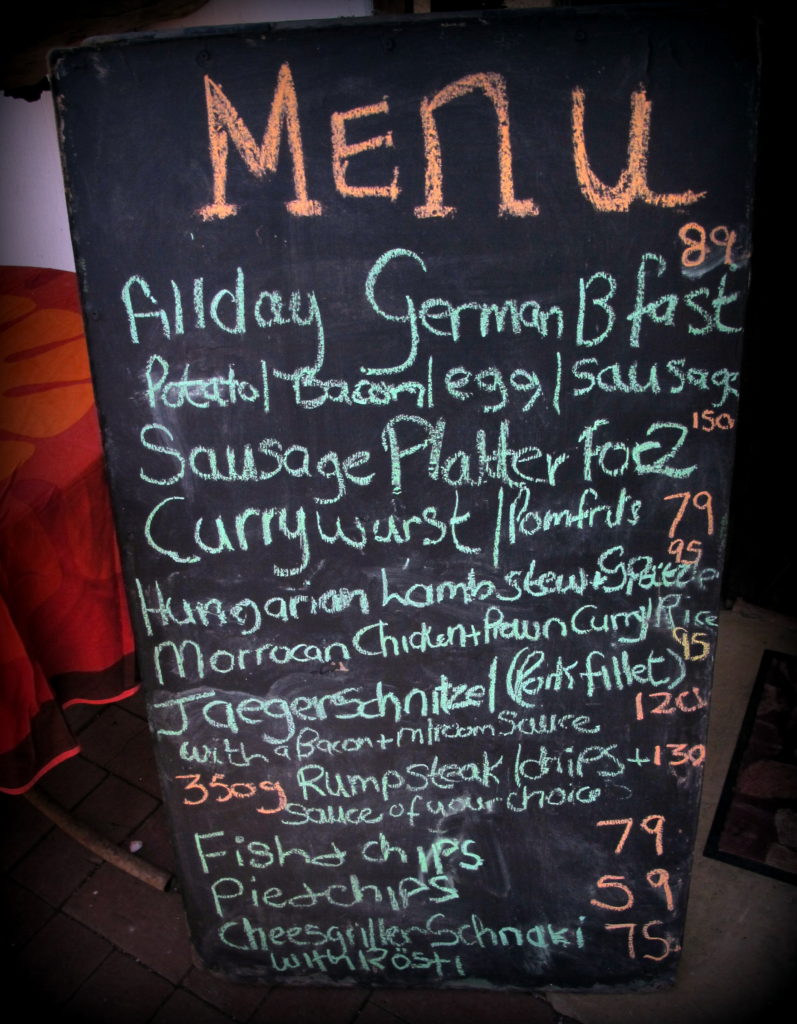 MENU
89
Allday German Bfast
Potato/Bacon/egg/sausage
150
Sausage Platter For 2
Currywurst/Pomfrits 79
95
Hungarian Lamb stew+Spätzle
Morrocan Chicken+Prawn Curry/Rice
95
Jaegerschnitzel (Pork fillet)
120
with a Bacon+M/room Sauce
350g Rumpsteak/chips+130
sauce of your choice
Fish+chips 79
Pie+chips 59
Cheesgriller Schnaki 75
with Rösti